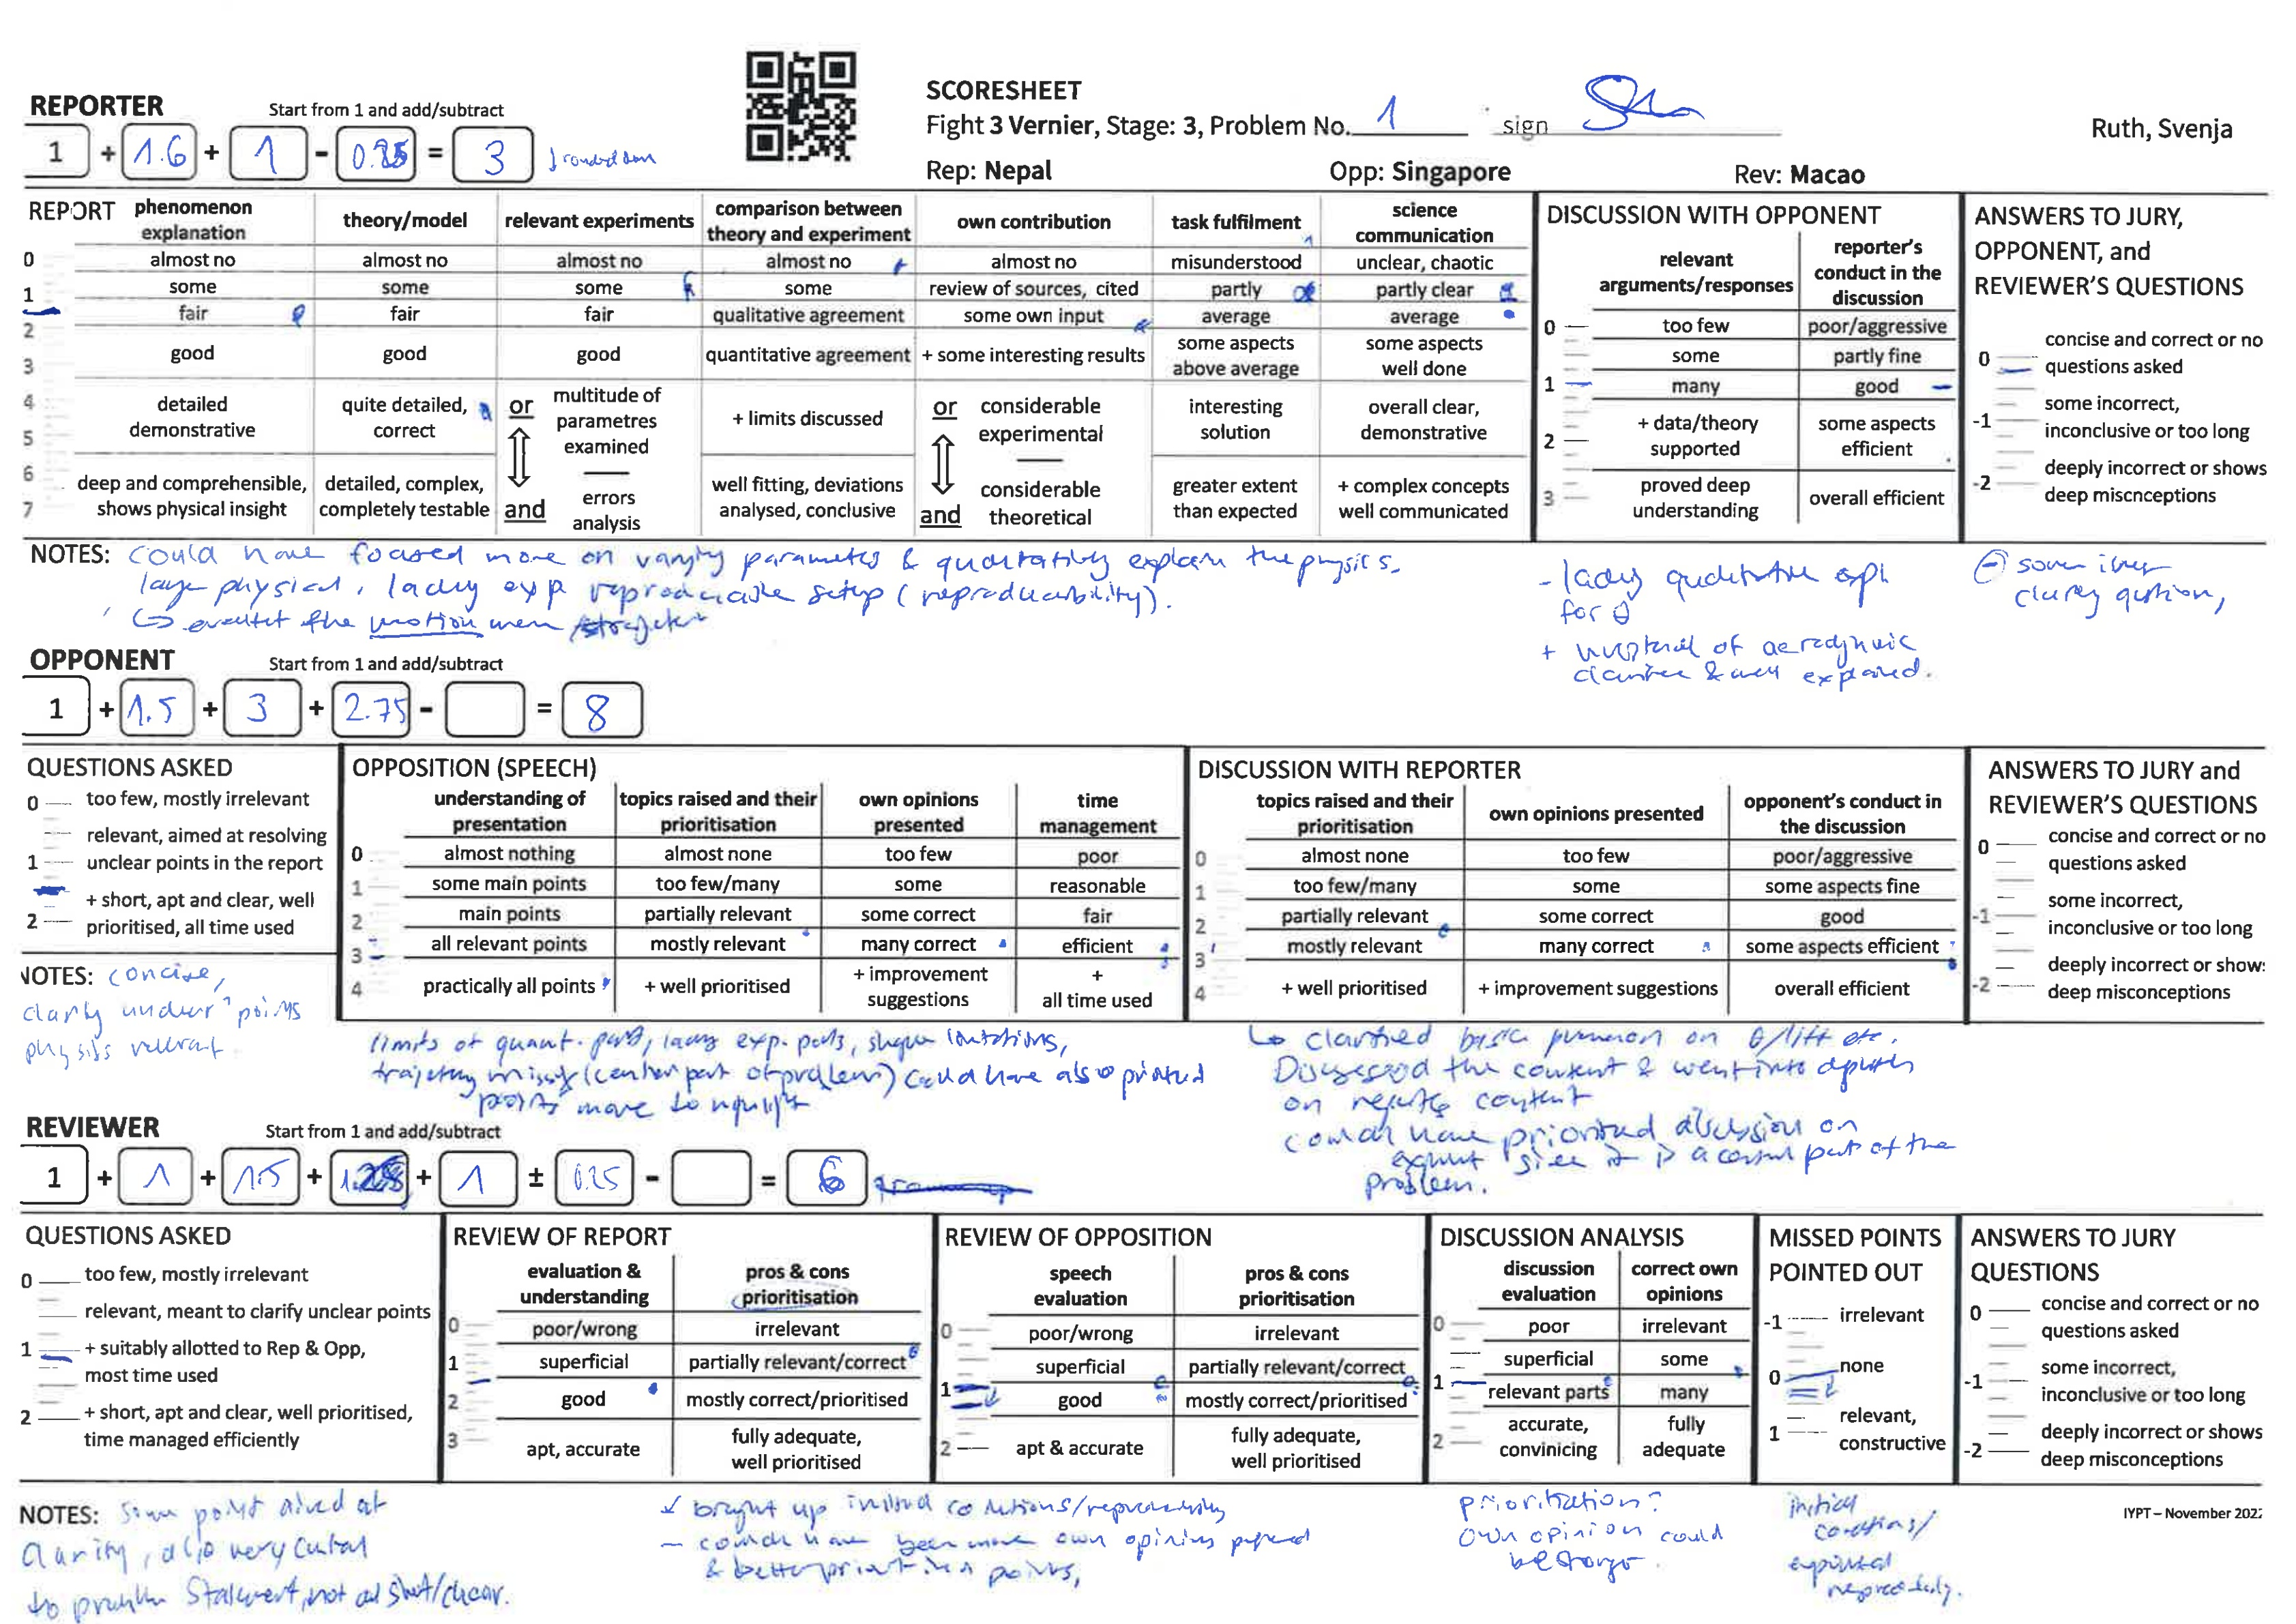 SCORESHEET
Fight 3 Vernier, Stage: 3, Problem No. 1 sign
Ruth, Svenja
Rep: Nepal Opp: Singapore Rev: Macao
REPORTER Start from 1 and add/subtract
1 + 1.6 + 1 - = 3 rounded down
REPORT
phenomenon explanation
theory/model
relevant experiments
comparison between theory and experiment
own contribution
task fulfilment
science communication
0 almost no almost no almost no almost no almost no misunderstood unclear, chaotic
1 some some some some review of sources, cited partly partly clear
2 fair fair fair qualitative agreement some own input average average
3 good good good quantitative agreement + some interesting results some aspects above average some aspects well done
4 5 detailed demonstrative quite detailed, correct or multitude of parametres examined + limits discussed or considerable experimental interesting solution overall clear, demonstrative
6 7 deep and comprehensible, shows physical insight detailed, complex, completely testable and errors analysis well fitting, deviations analysed, conclusive and considerable theoretical greater extent than expected + complex concepts well communicated
DISCUSSION WITH OPPONENT
relevant arguments/responses
reporter's conduct in the discussion
0 too few poor/aggressive
some partly fine
1 many good
2 + data/theory supported some aspects efficient
3 proved deep understanding overall efficient
ANSWERS TO JURY, OPPONENT, and REVIEWER'S QUESTIONS
0 concise and correct or no questions asked
-1 some incorrect, inconclusive or too long
-2 deeply incorrect or shows deep miscnceptions
NOTES: could have focused more on varying parameters & qualitatively explain the physics.
physical, exp reproducible setup (reproducibility).
of the motion
- qualitative
for θ
+ of aerodynamic
& well explained.
question,
OPPONENT Start from 1 and add/subtract
1 + 1.5 + 3 + 2.75 - = 8
QUESTIONS ASKED
0 too few, mostly irrelevant
1 relevant, aimed at resolving unclear points in the report
2 + short, apt and clear, well prioritised, all time used
NOTES: concise,
clarify points
physics relevant
OPPOSITION (SPEECH)
understanding of presentation
topics raised and their prioritisation
own opinions presented
time management
0 almost nothing almost none too few poor
1 some main points too few/many some reasonable
2 main points partially relevant some correct fair
3 all relevant points mostly relevant many correct efficient
4 practically all points + well prioritised + improvement suggestions + all time used
limits of quant. part, exp. parts,
trajectory missing (center part of problem) could have also
points more to
DISCUSSION WITH REPORTER
topics raised and their prioritisation
own opinions presented
opponent's conduct in the discussion
0 almost none too few poor/aggressive
1 too few/many some some aspects fine
2 partially relevant some correct good
3 mostly relevant many correct some aspects efficient
4 + well prioritised + improvement suggestions overall efficient
clarified basic on θ/lift etc.
Discussed the content & went into depth
on content
could have prioritised discussion on
given it is a central part of the
problem.
ANSWERS TO JURY and REVIEWER'S QUESTIONS
0 concise and correct or no questions asked
-1 some incorrect, inconclusive or too long
-2 deeply incorrect or show: deep misconceptions
REVIEWER Start from 1 and add/subtract
1 + 1 + 1.5 + + 1 ± 0.25 - = 6
QUESTIONS ASKED
0 too few, mostly irrelevant
relevant, meant to clarify unclear points
1 + suitably allotted to Rep & Opp, most time used
2 + short, apt and clear, well prioritised, time managed efficiently
REVIEW OF REPORT
evaluation & understanding
pros & cons prioritisation
0 poor/wrong irrelevant
1 superficial partially relevant/correct
2 good mostly correct/prioritised
3 apt, accurate fully adequate, well prioritised
REVIEW OF OPPOSITION
speech evaluation
pros & cons prioritisation
0 poor/wrong irrelevant
superficial partially relevant/correct
1 good mostly correct/prioritised
2 apt & accurate fully adequate, well prioritised
DISCUSSION ANALYSIS
discussion evaluation
correct own opinions
0 poor irrelevant
superficial some
1 relevant parts many
2 accurate, convinicing fully adequate
MISSED POINTS POINTED OUT
-1 irrelevant
0 none
1 relevant, constructive
ANSWERS TO JURY QUESTIONS
0 concise and correct or no questions asked
-1 some incorrect, inconclusive or too long
-2 deeply incorrect or shows deep misconceptions
NOTES: Some point aimed at
clarity, also very central
to problem Statement, not all short/clear.
brought up initial conditions/reproducibility
- could have been more own opinions
& better points,
prioritisation?
Own opinion could
be
initial
conditions/
IYPT – November 2022